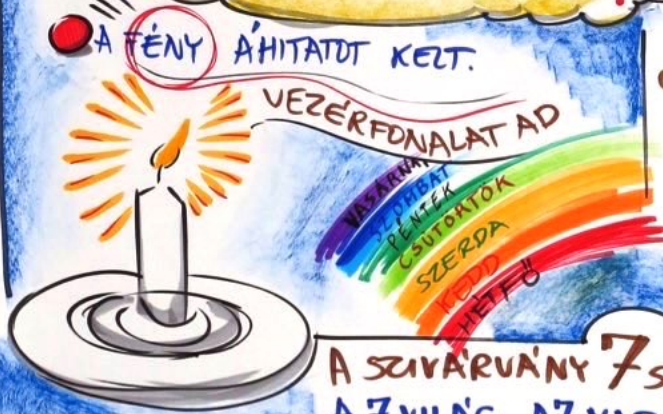 A FÉNY ÁHITATOT KELT.
VEZÉRFONALAT AD
VASÁRNAP
SZOMBAT
PÉNTEK
CSÜTÖRTÖK
SZERDA
KEDD
HÉTFŐ
A SZIVÁRVÁNY 7 S